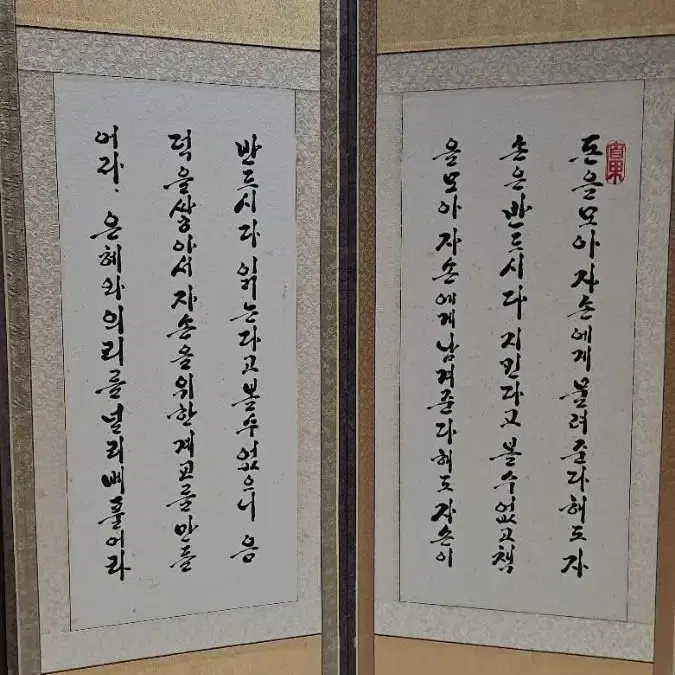 돈을 모아 자손에게 물려준다해도 자
손은 반드시 다 지킨다고 볼수없고 책
을 모아 자손에게 남겨준다해도 자손이
반드시 다 읽는다고 볼수없으니 음
덕을 쌓아서 자손을 위한 계교를 만들
어라. 은혜와 의리를 널리 베풀어라